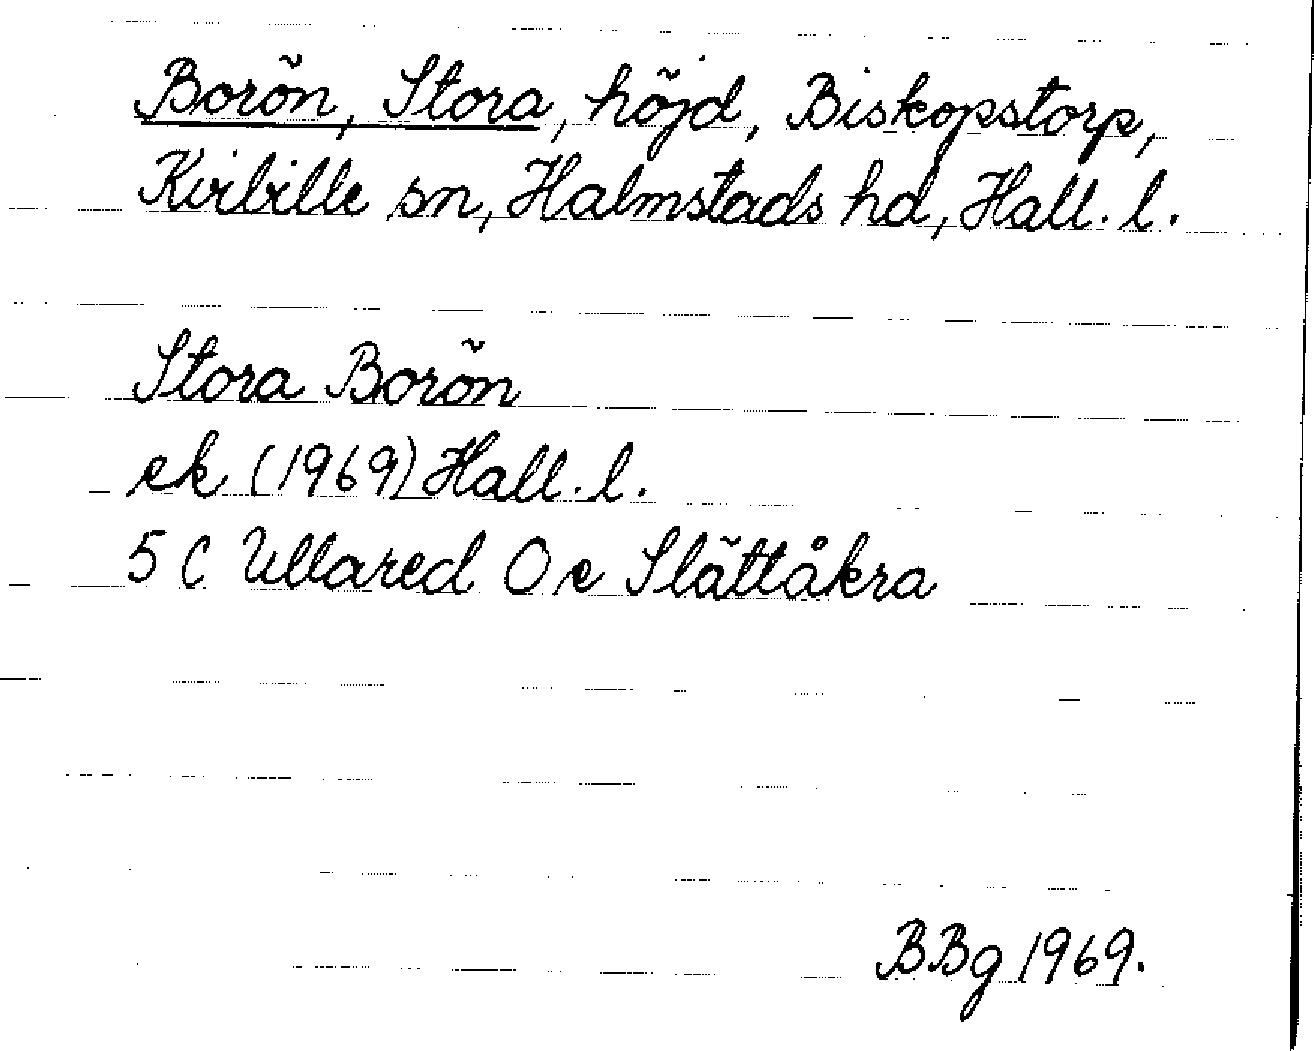 Borön, Stora, höjd, Biskopstorp,
Kvibille sn, Halmstads hd, Hall. l.
Stora Borön
ek (1969) Hall. l.
5 C Ullared 0 e Slättåkra
BBg 1969.